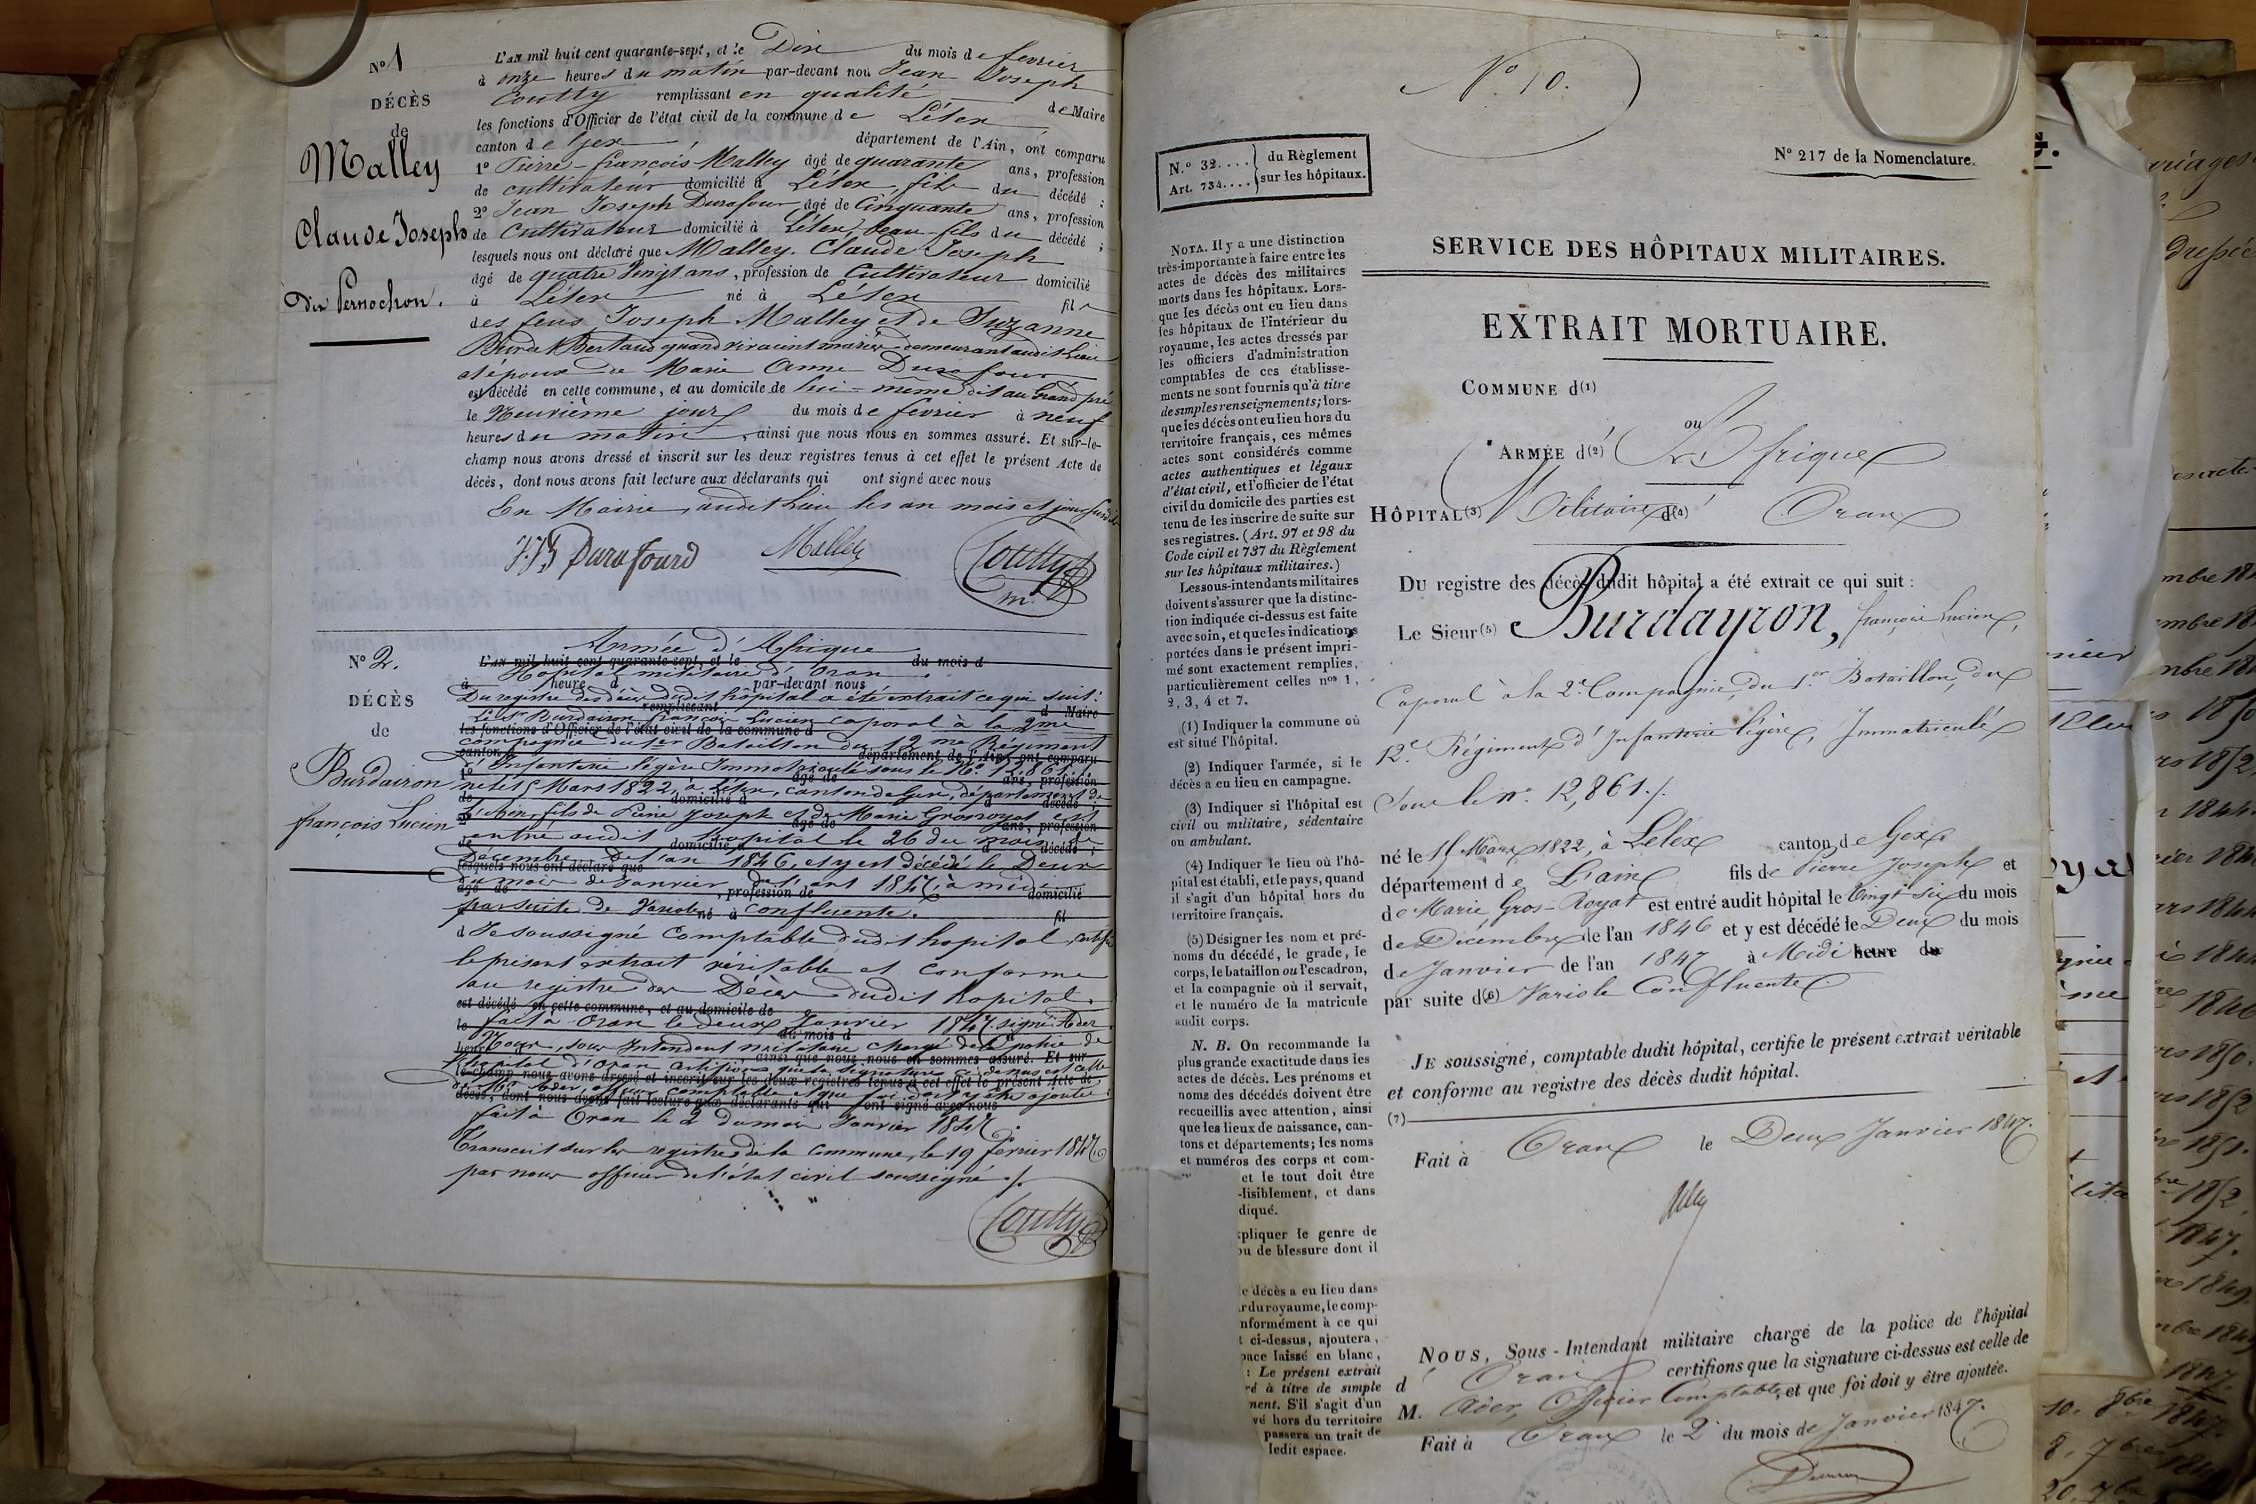 N° 1
DÉCÈS
de
Malley
Claude Joseph
du Pernochon.
L'AN mil huit cent quarante-sept, et le Dix du mois de fevrier
à onze heures du matin par-devant nou Jean Joseph
Coutty remplissant en qualité de Maire
les fonctions d'Officier de l'état civil de la commune de Lélex
canton de Gex, département de l'Ain, ont comparu
1° Pierre-françois Malley âgé de quarante ans, profession
de cultivateur domicilié à Lélex, fils du décédé :
2° Jean Joseph Durafour âgé de Cinquante ans, profession
de Cultivateur domicilié à Lélex, beau-fils du décédé ;
lesquels nous ont déclaré que Malley. Claude Joseph
âgé de quatre vingt ans, profession de Cultivateur domicilié
à Lélex né à Lélex fils
des feus Joseph Malley et de Suzanne
Burdet Bertaud quand vivaient mariés demeurant audit Lieu
et époux de Marie Anne Durafour
est décédé en cette commune, et au domicile de lui-même dit au Grand pré
le Neuvième jour du mois de fevrier à neuf
heures du matin, ainsi que nous nous en sommes assuré. Et sur-le-
champ nous avons dressé et inscrit sur les deux registres tenus à cet effet le présent Acte de
décès, dont nous avons fait lecture aux déclarants qui ont signé avec nous
En Mairie, audit Lieu les an mois et jour susdits
J. J. Durafourd Malley Coutty
m.
N° 2.
DÉCÈS
de
Burdairon
françois Lucien
Armée d'Afrique
L'AN mil huit cent quarante-sept, et le du mois d
Hopital militaire d'Oran.
à heure d par-devant nous
Du registre des décès dudit hopital a été extrait ce qui suit :
remplissant d Maire
Le Sr. Burdairon françois Lucien caporal à la 2me
les fonctions d'Officier de l'état civil de la commune d
compagnie du 1er Bataillon du 12me Régiment
canton d département de l'Ain, ont comparu
d'Infanterie légère Immatriculé sous le N° 12,861
1° âgé de ans, profession
né le 15 Mars 1822, à Lélex, canton de Gex, département de
de domicilié à d décédé ;
L'Ain, fils de Pierre Joseph et de Marie Grosroyat est
2° âgé de ans, profession
entré audit hopital le 26 du mois de
de domicilié à d décédé ;
Décembre de l'an 1846, et y est décédé le Deux
lesquels nous ont déclaré que
du mois de Janvier de l'an 1847, à midi
âgé de , profession de domicilié
par suite de Variole confluente.
né à fil
d Je soussigné Comptable dudit hopital, certifie
le présent extrait véritable et conforme
au registre des Décès dudit hopital.
est décédé en cette commune, et au domicile de
fait à Oran le deux Janvier 1847. signé Ader
le du mois d à
Nous, sous Intendant militaire chargé de la police de
heure d , ainsi que nous nous en sommes assuré. Et sur
l'hopital d'Oran certifions que la signature ci-dessus est celle
le-champ nous avons dressé et inscrit sur les deux registres tenus à cet effet le présent Acte de
de Mr. Ader, officier comptable et que foi doit y être ajoutée.
décès, dont nous avons fait lecture aux déclarants qui ont signé avec nous
fait à Oran le 2 du mois Janvier 1847.
Transcrit sur les registres de la Commune, le 19 fevrier 1847,
par nous officier de l'état civil soussigné ./.
Coutty
N° 10.
N.° 32.... du Règlement
Art. 734.... sur les hôpitaux.
N° 217 de la Nomenclature.
SERVICE DES HÔPITAUX MILITAIRES.
EXTRAIT MORTUAIRE.
COMMUNE d(1)
ou
ARMÉE d(2) Afrique
HÔPITAL(3) Militaire d(4) Oran
DU registre des décès dudit hôpital a été extrait ce qui suit :
Le Sieur(5) Burdayron, françois Lucien,
Caporal à la 2e Compagnie, du 1er Bataillon, du
12e Régiment d'Infanterie légère, Immatriculé
sous le n° 12,861./.
né le 15 Mars 1822, à Lelex canton de Gex
département de L'ain fils de Pierre Joseph et
de Marie, Gros-Royat est entré audit hôpital le Vingt six du mois
de Décembre de l'an 1846 et y est décédé le Deux du mois
de Janvier de l'an 1847 à Midi heure du
par suite d(6) Variole Confluente.
JE soussigné, comptable dudit hôpital, certifie le présent extrait véritable
et conforme au registre des décès dudit hôpital.
(7)
Fait à Oran le Deux Janvier 1847.
Ader
NOUS, Sous-Intendant militaire chargé de la police de l'hôpital
d'Oran certifions que la signature ci-dessus est celle de
M. Ader, Officier Comptable, et que foi doit y être ajoutée.
Fait à Oran le 2 du mois de Janvier 1847.
NOTA. Il y a une distinction
très-importante à faire entre les
actes de décès des militaires
morts dans les hôpitaux. Lors-
que les décès ont eu lieu dans
les hôpitaux de l'intérieur du
royaume, les actes dressés par
les officiers d'administration
comptables de ces établisse-
ments ne sont fournis qu'à titre
de simples renseignements; lors-
que les décès ont eu lieu hors du
territoire français, ces mêmes
actes sont considérés comme
actes authentiques et légaux
d'état civil, et l'officier de l'état
civil du domicile des parties est
tenu de les inscrire de suite sur
ses registres. (Art. 97 et 98 du
Code civil et 737 du Règlement
sur les hôpitaux militaires.)
Les sous-intendants militaires
doivent s'assurer que la distinc-
tion indiquée ci-dessus est faite
avec soin, et que les indications
portées dans le présent impri-
mé sont exactement remplies,
particulièrement celles nos 1,
2, 3, 4 et 7.
(1) Indiquer la commune où
est situé l'hôpital.
(2) Indiquer l'armée, si le
décès a eu lieu en campagne.
(3) Indiquer si l'hôpital est
civil ou militaire, sédentaire
ou ambulant.
(4) Indiquer le lieu où l'hô-
pital est établi, et le pays, quand
il s'agit d'un hôpital hors du
territoire français.
(5) Désigner les nom et pré-
noms du décédé, le grade, le
corps, le bataillon ou l'escadron,
et la compagnie où il servait,
et le numéro de la matricule
audit corps.
N. B. On recommande la
plus grande exactitude dans les
actes de décès. Les prénoms et
noms des décédés doivent être
recueillis avec attention, ainsi
que les lieux de naissance, can-
tons et départements; les noms
et numéros des corps et com-
et le tout doit être
lisiblement, et dans
diqué.
xpliquer le genre de
ou de blessure dont il
e décès a eu lieu dans
r du royaume, le comp-
nformément à ce qui
t ci-dessus, ajoutera,
pace laissé en blanc,
: Le présent extrait
ré à titre de simple
ment. S'il s'agit d'un
vé hors du territoire
passera un trait de
ledit espace.